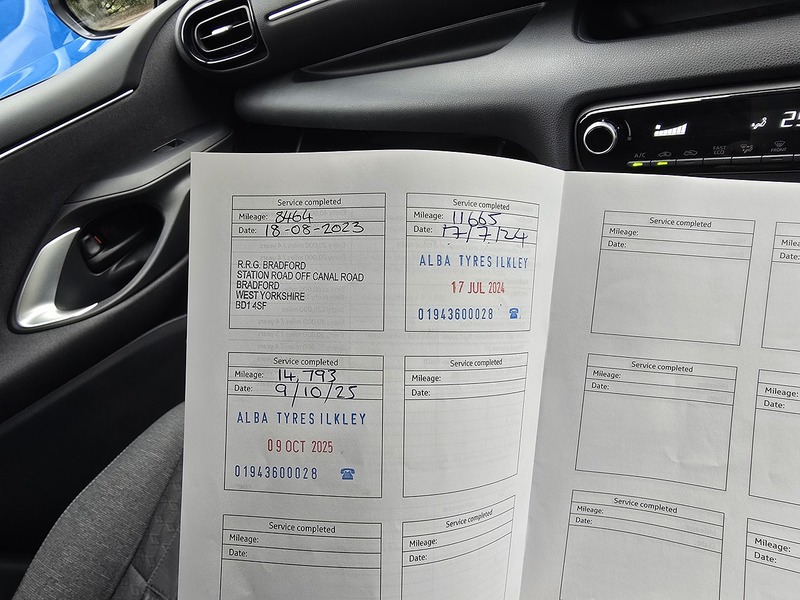 Service completed
Mileage: 8464
Date: 18-08-2023
R.R.G. BRADFORD
STATION ROAD OFF CANAL ROAD
BRADFORD
WEST YORKSHIRE
BD1 4SF
Service completed
Mileage: 11665
Date: 17/7/24
ALBA TYRES ILKLEY
17 JUL 2024
01943600028 ☎
Service completed
Mileage: 14,793
Date: 9/10/25
ALBA TYRES ILKLEY
09 OCT 2025
01943600028 ☎
Service completed
Mileage:
Date:
Service completed
Mileage:
Date:
Service completed
Mileage:
Date:
Service completed
Mileage:
Date:
Mileage:
Date:
Service completed
Mileage:
Date:
Mileage:
Date:
Service completed
Mileage:
Date:
Mileage:
Date:
A/C
FAST
ECO
FRONT